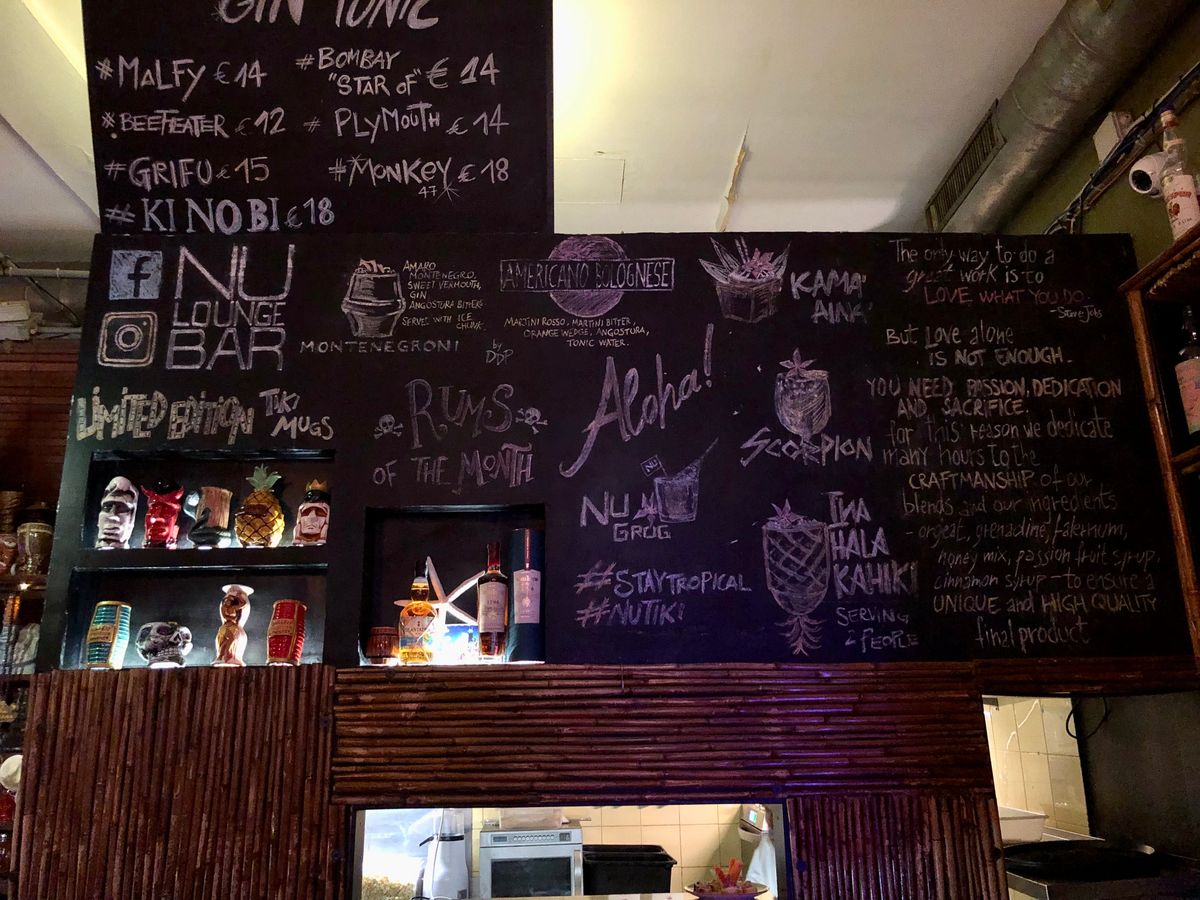 GIN TONIC
#MALFY €14
#BOMBAY
"STAR OF" € 14
#BEEFEATER €12
# PLYMOUTH €14
#GRIFU €15
#MONKEY €18
47
#KI NO BI €18
NU
LOUNGE
BAR
AMARO
MONTENEGRO,
SWEET VERMOUTH,
GIN
ANGOSTURA BITTERS
SERVED WITH ICE
CHUNK.
MONTENEGRONI
by
DDP
AMERICANO BOLOGNESE
MARTINI ROSSO, MARTINI BITTER,
ORANGE WEDGE, ANGOSTURA,
TONIC WATER.
KAMA'
AINA'
LIMITED EDITION TIKI
MUGS
RUMS
OF THE MONTH
Aloha!
SCORPION
NU
NU
GROG
#STAYTROPICAL
#NUTIKI
THA
HALA
KAHIKI
SERVING
2 PEOPLE
The only way to do a
great work is to
LOVE WHAT YOU DO
-Steve Jobs
But Love alone
IS NOT ENOUGH.
YOU NEED PASSION, DEDICATION
AND SACRIFICE.
for this reason we dedicate
many hours to the
CRAFTMANSHIP of our
blends and our ingredients
- orgeat, grenadine, falernum,
honey mix, passion fruit syrup,
cinnamon syrup - to ensure a
UNIQUE and HIGH QUALITY
final product